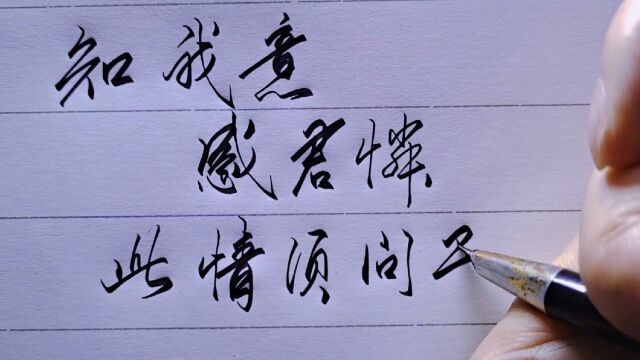 知我意
感君憐
此情须问